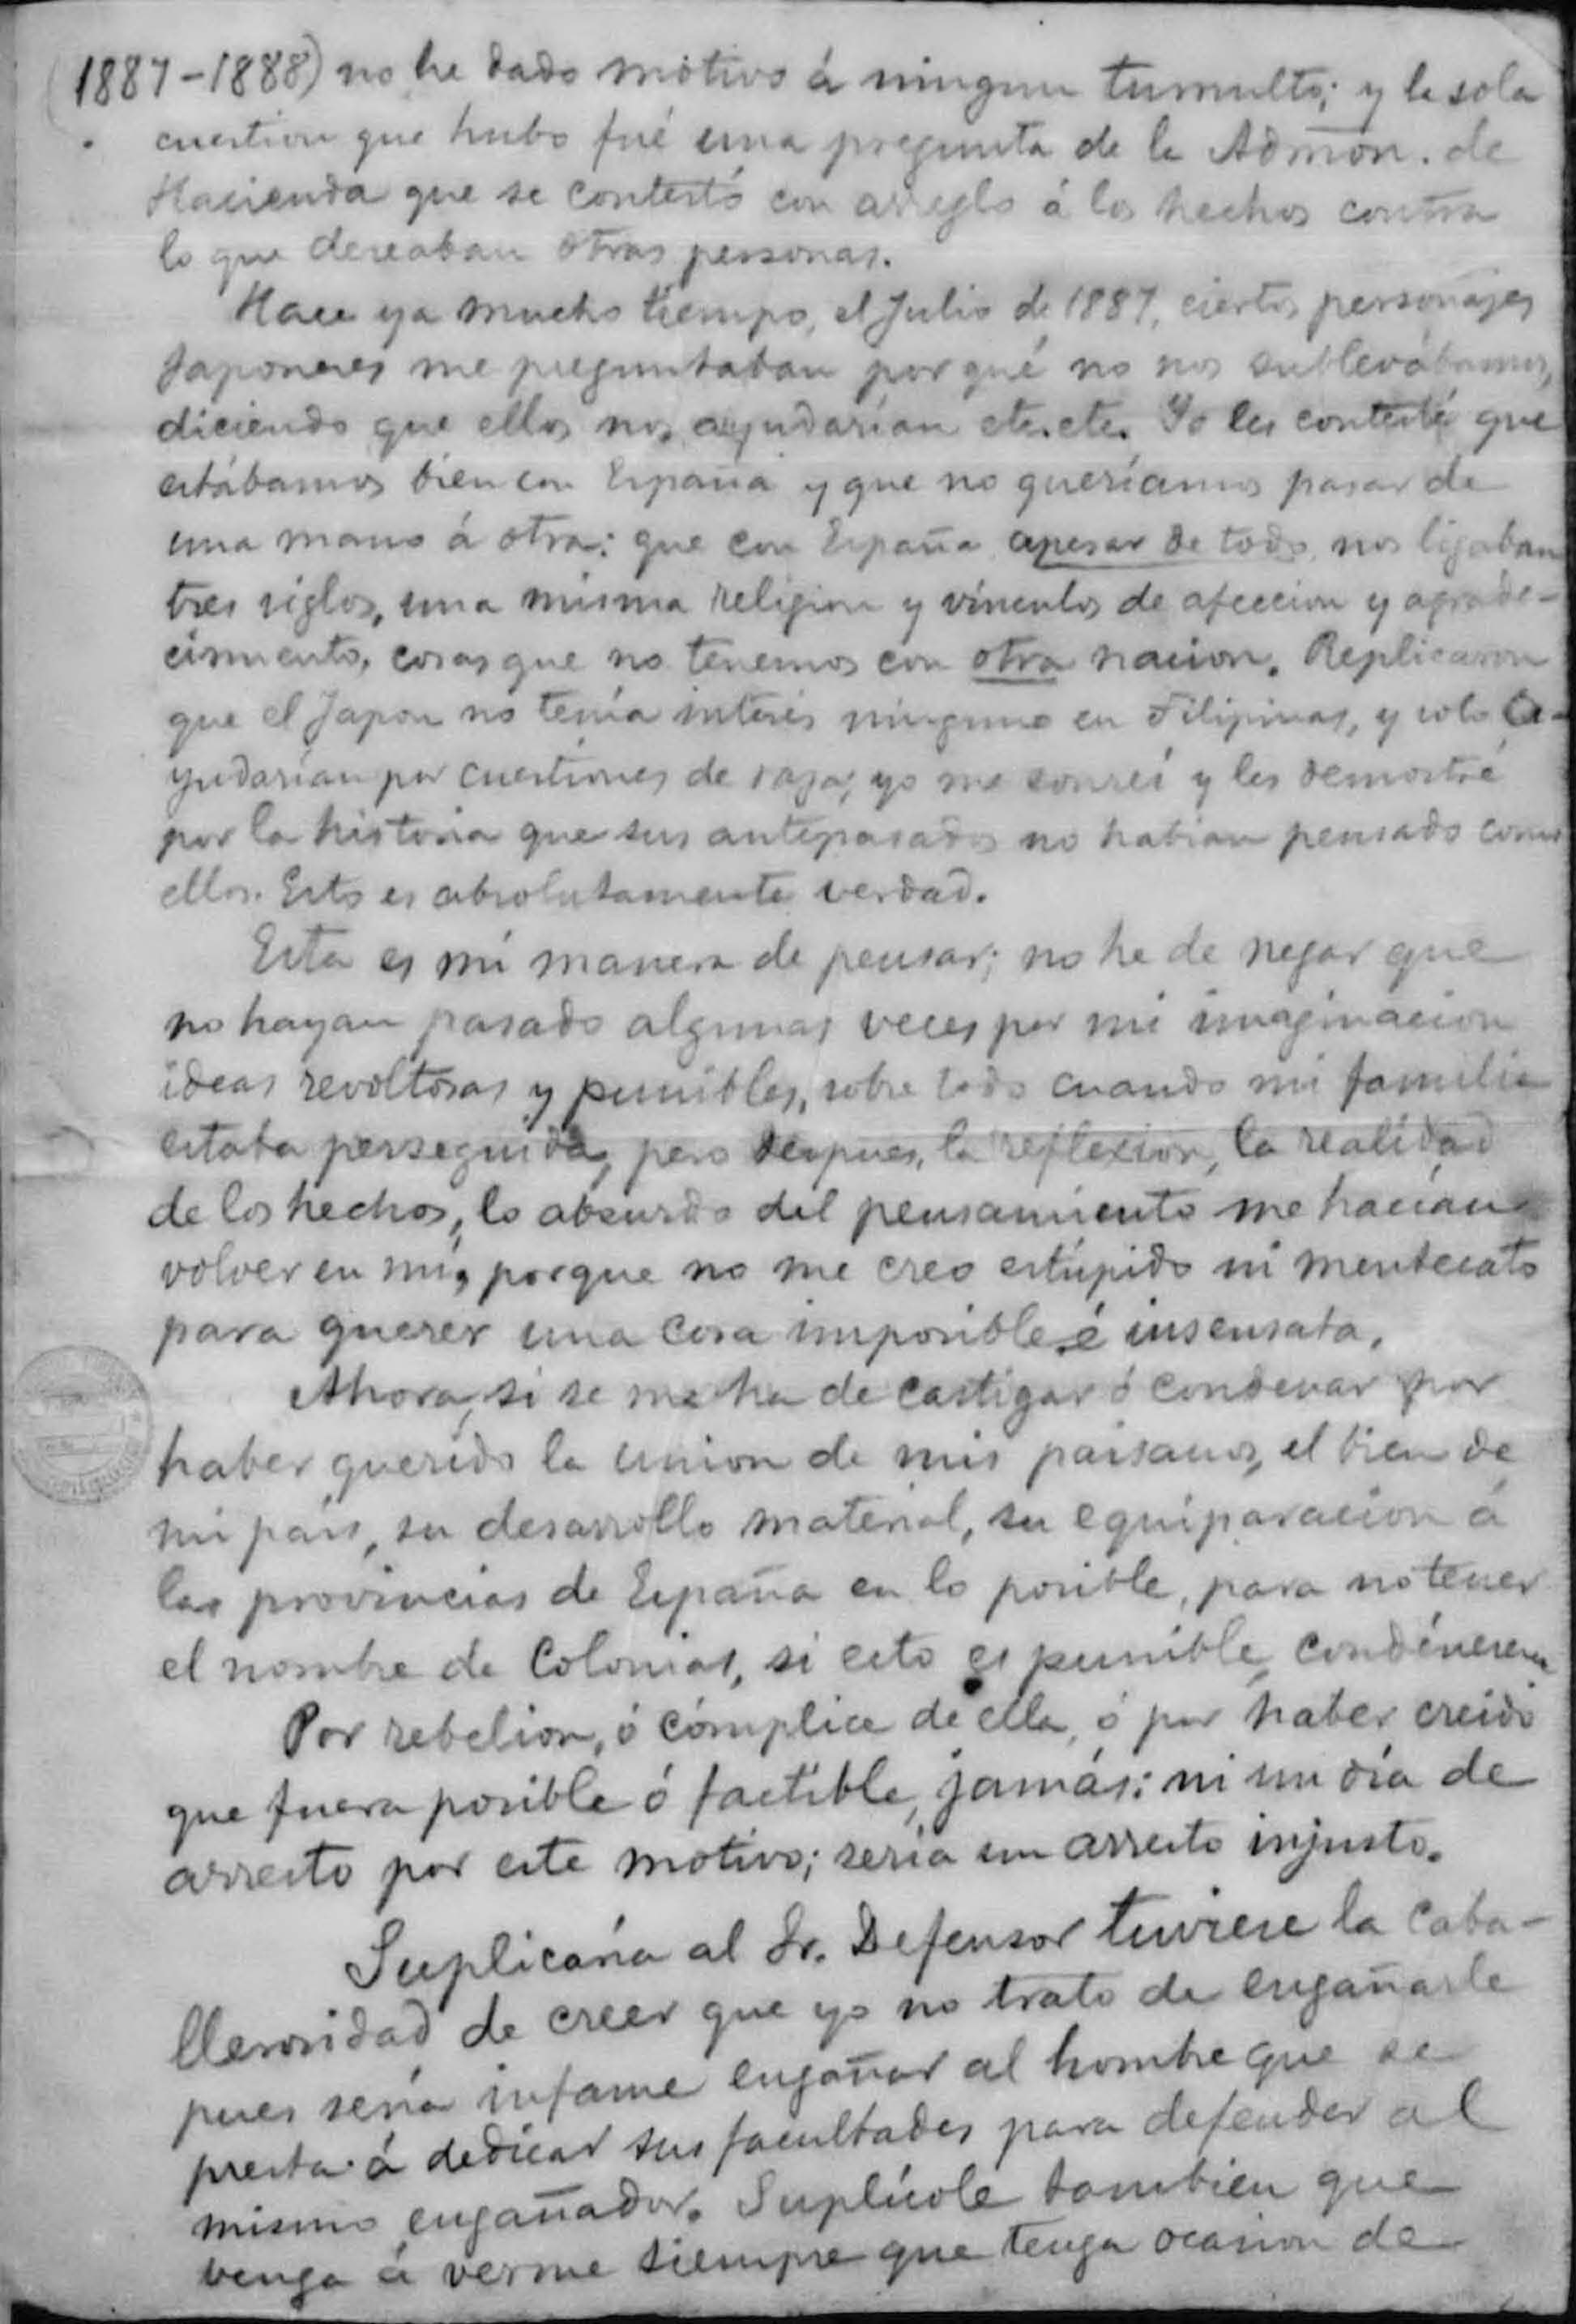 (1887-1888) no he dado motivo á ningun tumulto; y la sola
cuestion que hubo fué una pregunta de la Admon. de
Hacienda que se contestó con arreglo á los hechos contra
lo que deseaban otras personas.
Hace ya mucho tiempo, el Julio de 1887, ciertos personajes
Japoneses me preguntaban por qué no nos sublevábamos,
diciendo que ellos nos ayudarían etc. etc. Yo les contesté que
estábamos bien con España y que no queríamos pasar de
una mano á otra: que con España apesar de todo, nos ligaban
tres siglos, una misma religion y vínculos de afeccion y agrade-
cimiento, cosas que no tenemos con otra nacion. Replicaron
que el Japon no tenía interés ninguno en Filipinas, y solo a-
yudarían por cuestiones de raza; yo me sonreí y les demostré
por la historia que sus antepasados no habían pensado como
ellos. Esto es absolutamente verdad.
Esta es mi manera de pensar; no he de negar que
no hayan pasado algunas veces por mi imaginacion
ideas revoltosas y punibles, sobre todo cuando mi familia
estaba perseguida, pero despues, la reflexion, la realidad
de los hechos, lo absurdo del pensamiento me hacían
volver en mí, porque no me creo estúpido ni mentecato
para querer una cosa imposible é insensata.
Ahora, si se me ha de castigar ó condenar por
haber querido la union de mis paisanos, el bien de
mi país, su desarrollo material, su equiparacion á
las provincias de España en lo posible, para no tener
el nombre de Colonias, si esto es punible, condéneseme
Por rebelion, ó cómplice de ella, ó por haber creido
que fuera posible ó factible, jamás: ni un día de
arresto por este motivo; sería un arresto injusto.
Suplicaría al Sr. Defensor tuviese la caba-
llerosidad de creer que yo no trato de engañarle
pues sería infame engañar al hombre que se
presta á dedicar sus facultades para defender al
mismo engañador. Suplícole tambien que
venga á verme siempre que tenga ocasion de